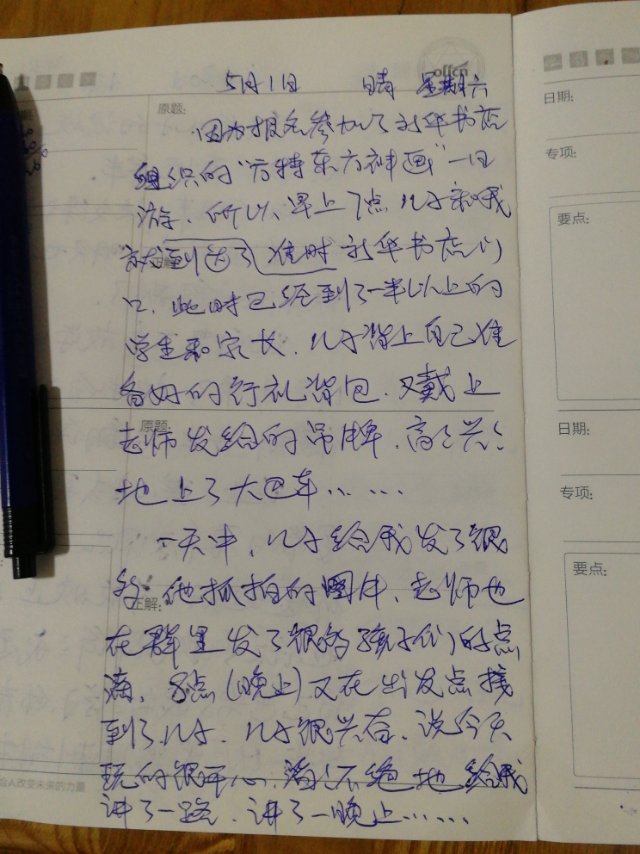 offcn
5月1日 晴 星期六
原题:
因为报名参加了新华书店
组织的“方特东方神画”一日
游,所以,早上7点儿子和我
就到达了准时新华书店门
口,此时已经到了一半以上的
学生和家长,儿子背上自己准
备好的行礼背包,又戴上
老师发给的吊牌,高高兴兴
地上了大巴车……
原题:
一天中,儿子给我发了很
多他抓拍的图片,老师也
正解:
在群里发了很多孩子们的点
滴,8点(晚上)又在出发点接
到了儿子,儿子很兴奋,说今天
玩的很开心,滔滔不绝地给我
讲了一路,讲了一晚上……
人改变未来的力量
日期:
专项:
要点:
日期:
专项:
要点: